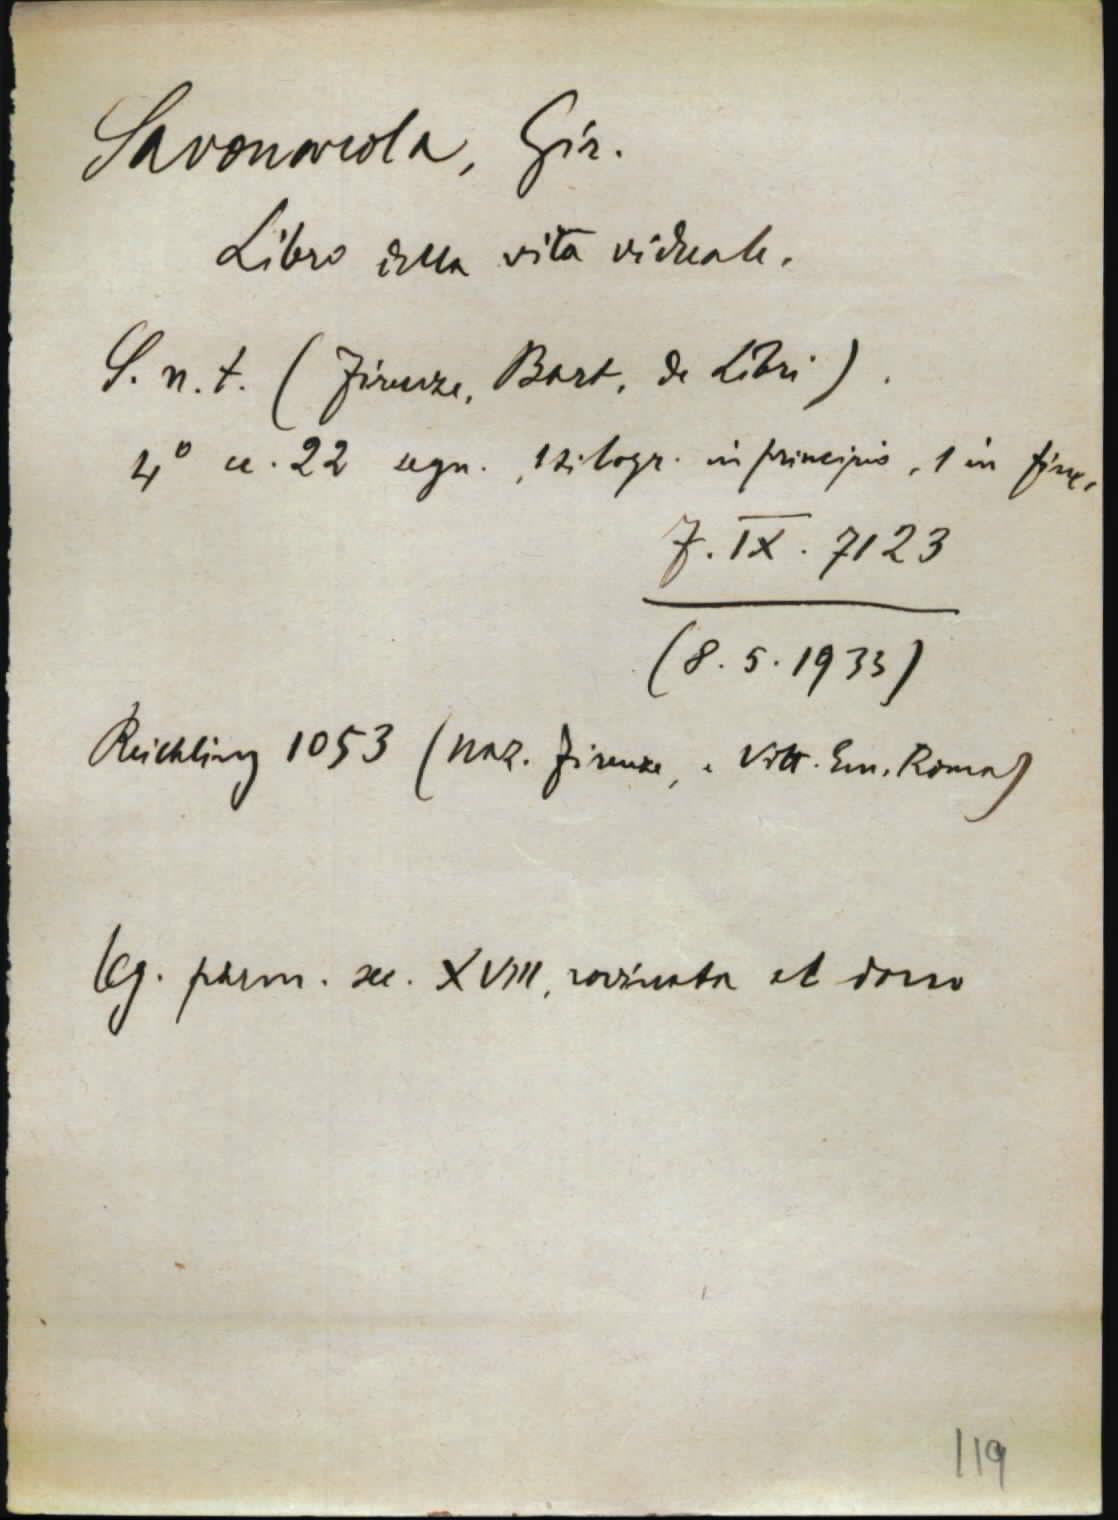 Savonarola, Gir.
Libro della vita viduale.
S. n. t. (Firenze, Bart. de Libri).
4° cc. 22 segn., 1 xilogr. in principio, 1 in fine.
7. IX. 7123
(8. 5. 1933)
Reichling 1053 (Naz. Firenze, e Vitt. Em. Roma)
Leg. perm. sec. XVIII, rovinata al dorso
119